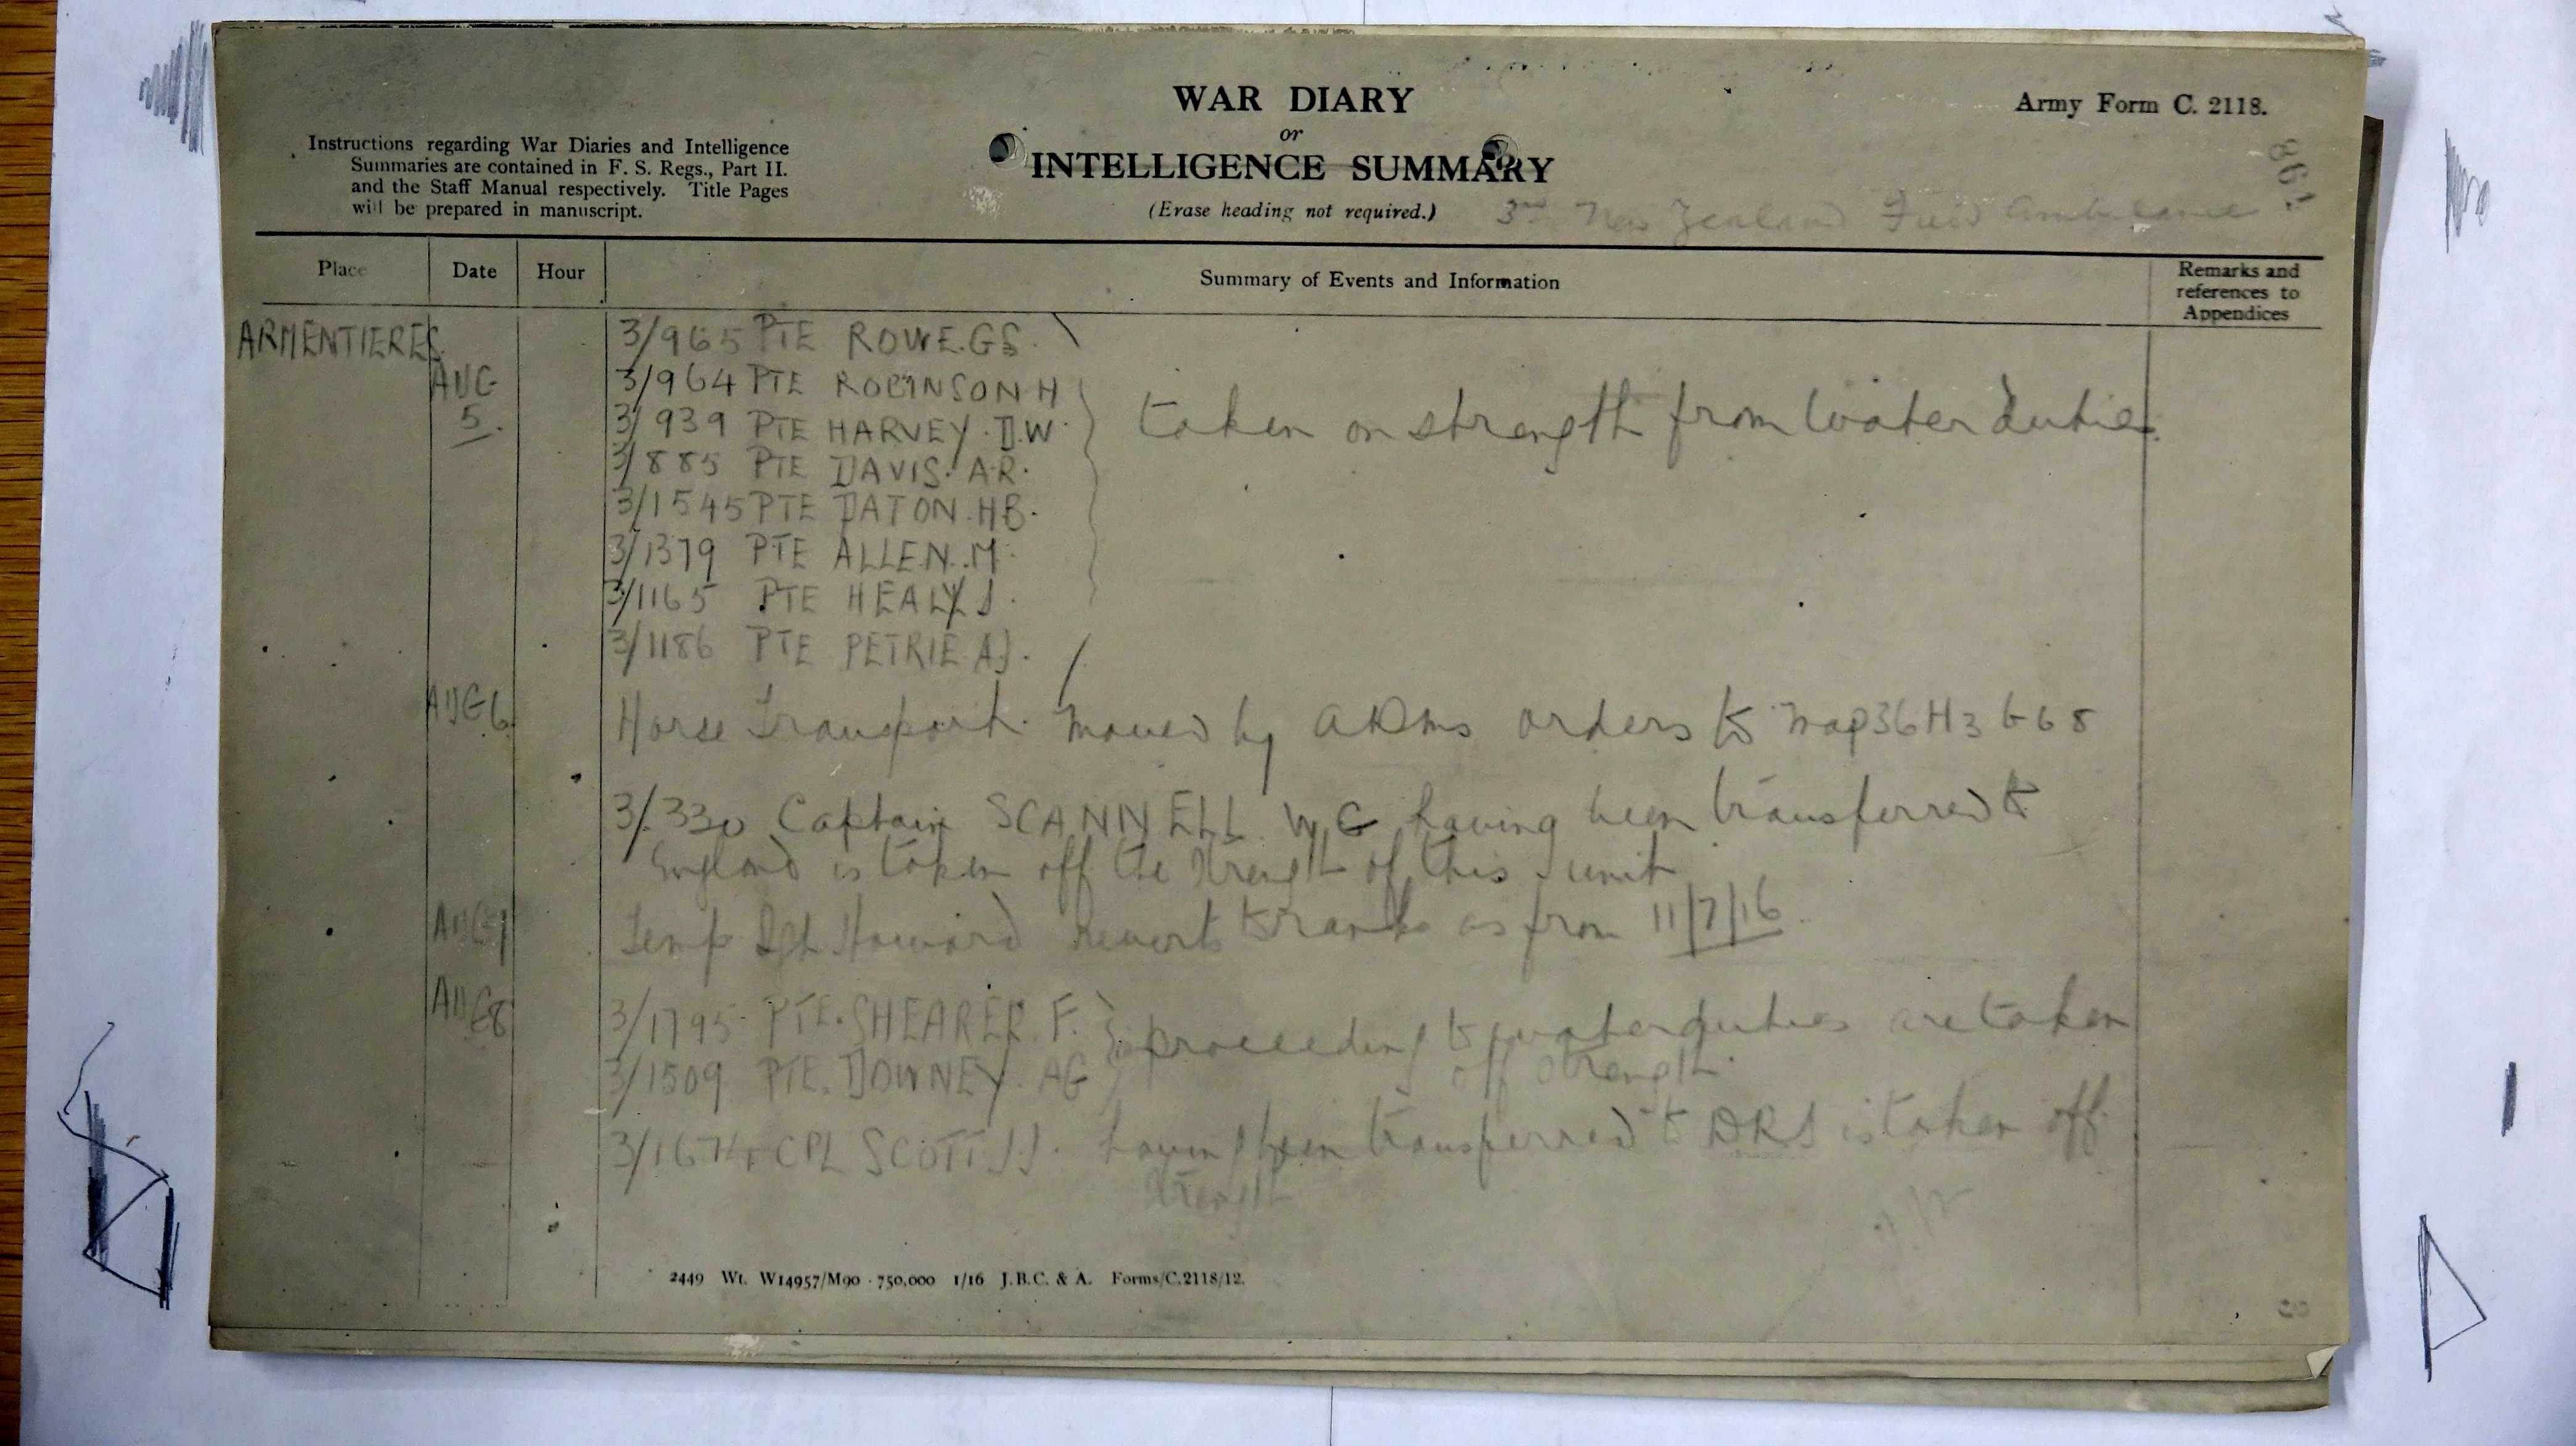 WAR DIARY
or
INTELLIGENCE SUMMARY
(Erase heading not required.)
Army Form C. 2118.
Instructions regarding War Diaries and Intelligence
Summaries are contained in F. S. Regs., Part II.
and the Staff Manual respectively. Title Pages
will be prepared in manuscript.
3rd New Zealand Field Ambulance
Place Date Hour Summary of Events and Information Remarks and references to Appendices
ARMENTIERES 3/965 PTE ROWE. GS.
AUG 3/964 PTE ROBINSON H
5. 3/939 PTE HARVEY. D.W. taken on strength from water duties
3/885 PTE DAVIS. A.R.
3/1545 PTE DATON. HB.
3/1379 PTE ALLEN. M.
3/1165 PTE HEALY J.
3/1186 PTE PETRIE AJ.
AUG 6 Horse Transport moved by ADMS orders to Map 36 H3
3/330 Captain SCANNELL W G having been transferred to
England is taken off the strength of this unit
AUG 7 Temp Howard reverts to ranks as from 11/7/16
AUG 8 3/1795 PTE. SHEARER. F. proceeding to water duties are taken
3/1509 PTE. DOWNEY. AG off strength.
3/1674 CPL SCOTT J.J. having been transferred to DRS is taken off
strength
2449 Wt. W14957/M90 750,000 1/16 J.B.C. & A. Forms/C.2118/12.